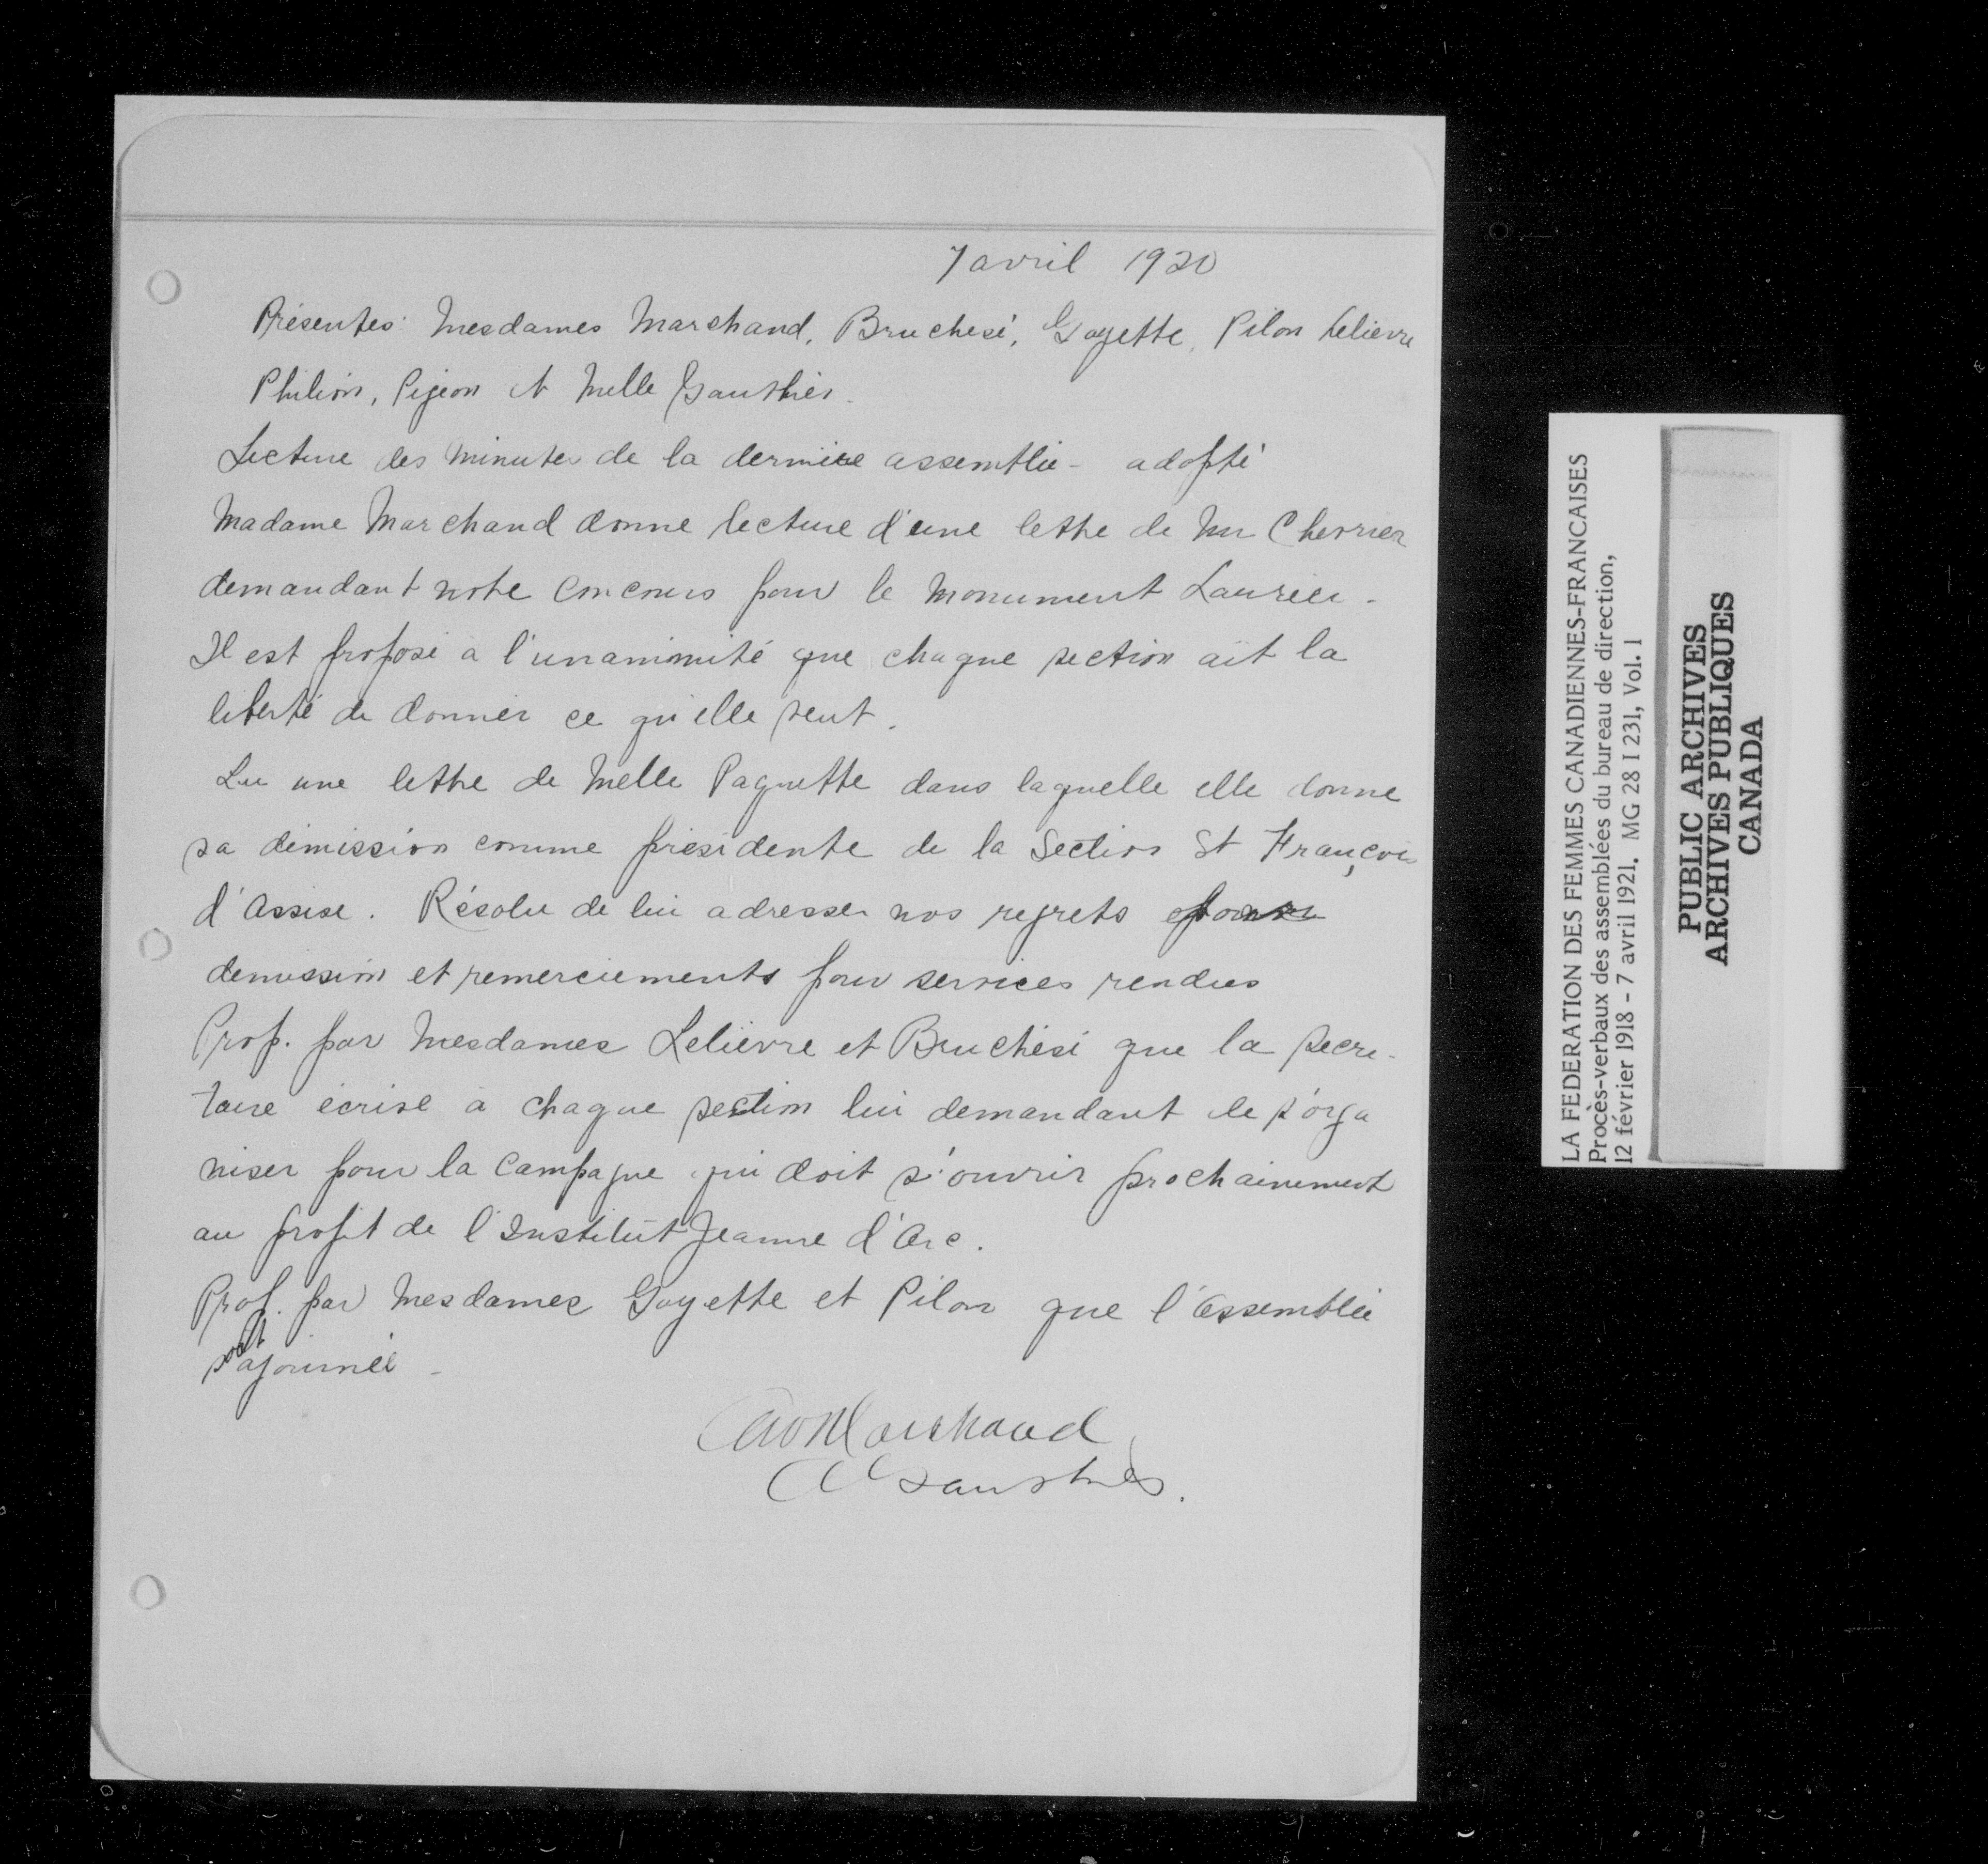 7 avril 1920
Présentes: Mesdames Marchand, Bruchesi, Goyette, Pilon Lelievre
Philion, Pigeon et Melle Gauthier.
Lecture des minutes de la dernière assemblée - adopté
Madame Marchand donne lecture d'une lettre de Mr Cherrier
demandant notre concours pour le monument Laurier -
Il est proposé à l'unanimité que chaque section ait la
liberté de donner ce qu'elle peut.
Lu une lettre de Melle Paquette dans laquelle elle donne
sa démission comme présidente de la Section St François
d'Assise. Résolu de lui adresser nos regrets
demission et remerciements pour services rendus
Prop. par Mesdames Lelièvre et Bruchési que la secré-
taire écrise à chaque section lui demandant de s'orga
niser pour la campagne qui doit s'ouvrir prochainement
au profit de l'Institut Jeanne d'Arc.
Prop. par Mesdames Goyette et Pilon que l'assemblée
soit ajournée -
Marchand
Gauthier.
LA FEDERATION DES FEMMES CANADIENNES-FRANCAISES
Procès-verbaux des assemblées du bureau de direction,
12 février 1918 - 7 avril 1921. MG 28 I 231, Vol. 1
PUBLIC ARCHIVES
ARCHIVES PUBLIQUES
CANADA